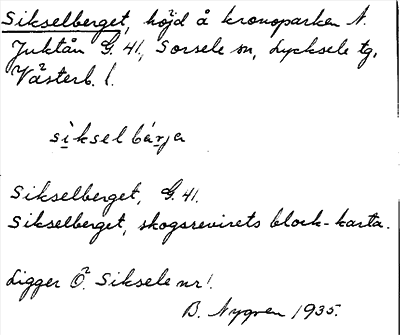 Sikselberget, höjd å kronoparken N.
Juktån G. 41, Sorsele sn, Lycksele tg,
Västerb. l.
siksel bärja
Sikselberget, G. 41.
Sikselberget, skogsrevirets block-karta.
Ligger Ö. Siksele nr 1.
B. Nygren 1935.